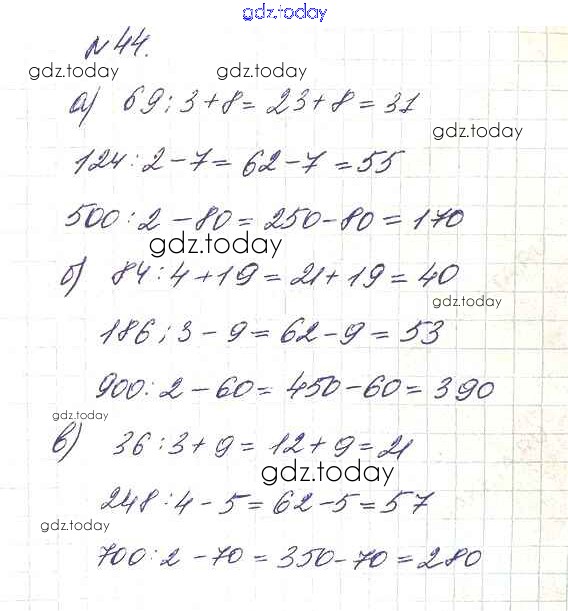 gdz.today
№ 44.
gdz.today gdz.today
а) 69 : 3 + 8 = 23 + 8 = 31
gdz.today
124 : 2 - 7 = 62 - 7 = 55
500 : 2 - 80 = 250 - 80 = 170
gdz.today
б) 84 : 4 + 19 = 21 + 19 = 40
gdz.today
186 : 3 - 9 = 62 - 9 = 53
900 : 2 - 60 = 450 - 60 = 390
gdz.today
в) 36 : 3 + 9 = 12 + 9 = 21
gdz.today
248 : 4 - 5 = 62 - 5 = 57
gdz.today
700 : 2 - 70 = 350 - 70 = 280